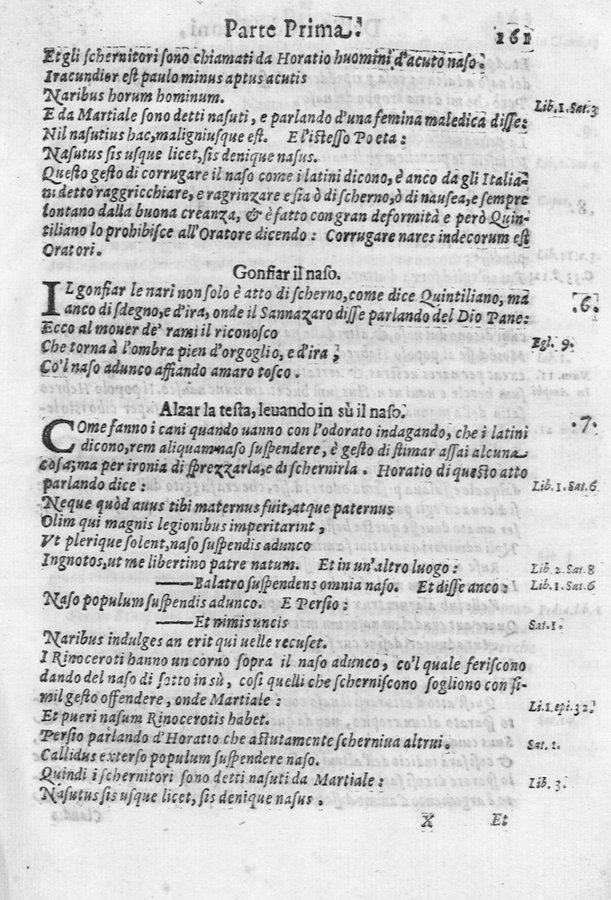 Parte Prima. 161
Et gli schernitori sono chiamati da Horatio huomini d'acuto naso.
Iracundior est paulo minus aptus acutis
Naribus horum hominum. Lib.1.Sat.3
E da Martiale sono detti nasuti, e parlando d'una femina maledica disse:
Nil nasutius hac, maligniusque est. E l'istesso Poeta:
Nasutus sis usque licet, sis denique nasus.
Questo gesto di corrugare il naso come i latini dicono, è anco da gli Italia-
ni detto raggricchiare, e ragrinzare e sia ò di scherno, ò di nausea, e sempre
lontano dalla buona creanza, & è fatto con gran deformità e però Quin-
tiliano lo prohibisce all'Oratore dicendo: Corrugare nares indecorum est
Oratori.
Gonfiar il naso.
IL gonfiar le nari non solo è atto di scherno, come dice Quintiliano, ma .6.
anco di sdegno, e d'ira, onde il Sannazaro disse parlando del Dio Pane:
Ecco al mouer de' rami il riconosco Egl. 9.
Che torna à l'ombra pien d'orgoglio, e d'ira,
Co'l naso adunco affiando amaro tosco.
Alzar la testa, leuando in sù il naso. .7.
COme fanno i cani quando uanno con l'odorato indagando, che i latini
dicono, rem aliquam naso suspendere, è gesto di stimar assai alcuna
cosa, ma per ironia di sprezzarla, e di schernirla. Horatio di questo atto
parlando dice: Lib.1.Sat.6
Neque quòd auus tibi maternus fuit, atque paternus
Olim qui magnis legionibus imperitarint,
Vt plerique solent, naso suspendis adunco
Ingnotos, ut me libertino patre natum. Et in un'altro luogo: Lib.2.Sat.8
——Balatro suspendens omnia naso. Et disse anco: Lib.1.Sat.6
Naso populum suspendis adunco. E Persio:
——Et nimis uncis Sat.1.
Naribus indulges an erit qui uelle recuset.
I Rinoceroti hanno un corno sopra il naso adunco, co'l quale feriscono
dando del naso di sotto in sù, così quelli che scherniscono sogliono con si-
mil gesto offendere, onde Martiale: Li.1.epi.32.
Et pueri nasum Rinocerotis habet.
Persio parlando d'Horatio che astutamente scherniua altrui. Sat.1.
Callidus exterso populum suspendere naso.
Quindi i schernitori sono detti nasuti da Martiale: Lib.3.
Nasutus sis usque licet, sis denique nasus.
X Et